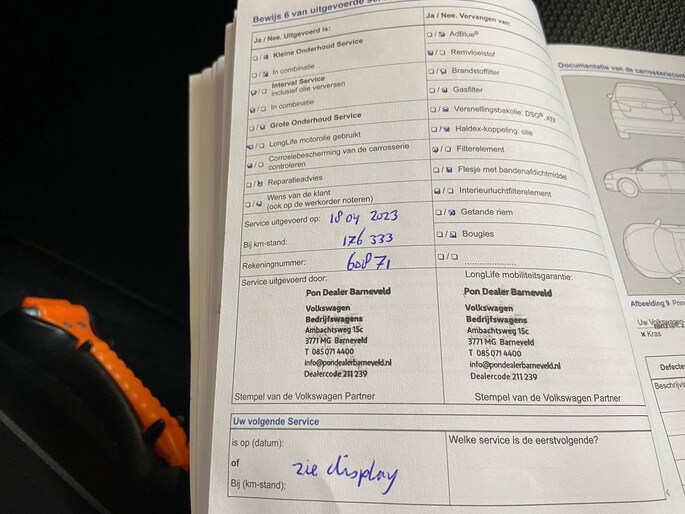 Bewijs 6 van uitgevoerde
Ja / Nee. Uitgevoerd is:
Kleine Onderhoud Service
In combinatie
Interval Service
inclusief olie verversen
In combinatie
Grote Onderhoud Service
LongLife motorolie gebruikt
Corrosiebescherming van de carrosserie
controleren
Reparatieadvies
Wens van de klant
(ook op de werkorder noteren)
Service uitgevoerd op: 18 04 2023
Bij km-stand: 176 333
Rekeningnummer: 60871
Ja / Nee. Vervangen van:
AdBlue®
Remvloeistof
Brandstoffilter
Gasfilter
Versnellingsbakolie: DSG®, ATF
Haldex-koppeling: olie
Filterelement
Flesje met bandenafdichtmiddel
Interieurluchtfilterelement
Getande riem
Bougies
Service uitgevoerd door:
Pon Dealer Barneveld
Volkswagen
Bedrijfswagens
Ambachtsweg 15c
3771 MG Barneveld
T 085 071 4400
info@pondealerbarneveld.nl
Dealercode 211 239
Stempel van de Volkswagen Partner
LongLife mobiliteitsgarantie:
Pon Dealer Barneveld
Volkswagen
Bedrijfswagens
Ambachtsweg 15c
3771 MG Barneveld
T 085 071 4400
info@pondealerbarneveld.nl
Dealercode 211 239
Stempel van de Volkswagen Partner
Uw volgende Service
is op (datum):
of
zie display
Bij (km-stand):
Welke service is de eerstvolgende?
Documentatie van de
Afbeelding 9
Uw Volkswagen
x Kras